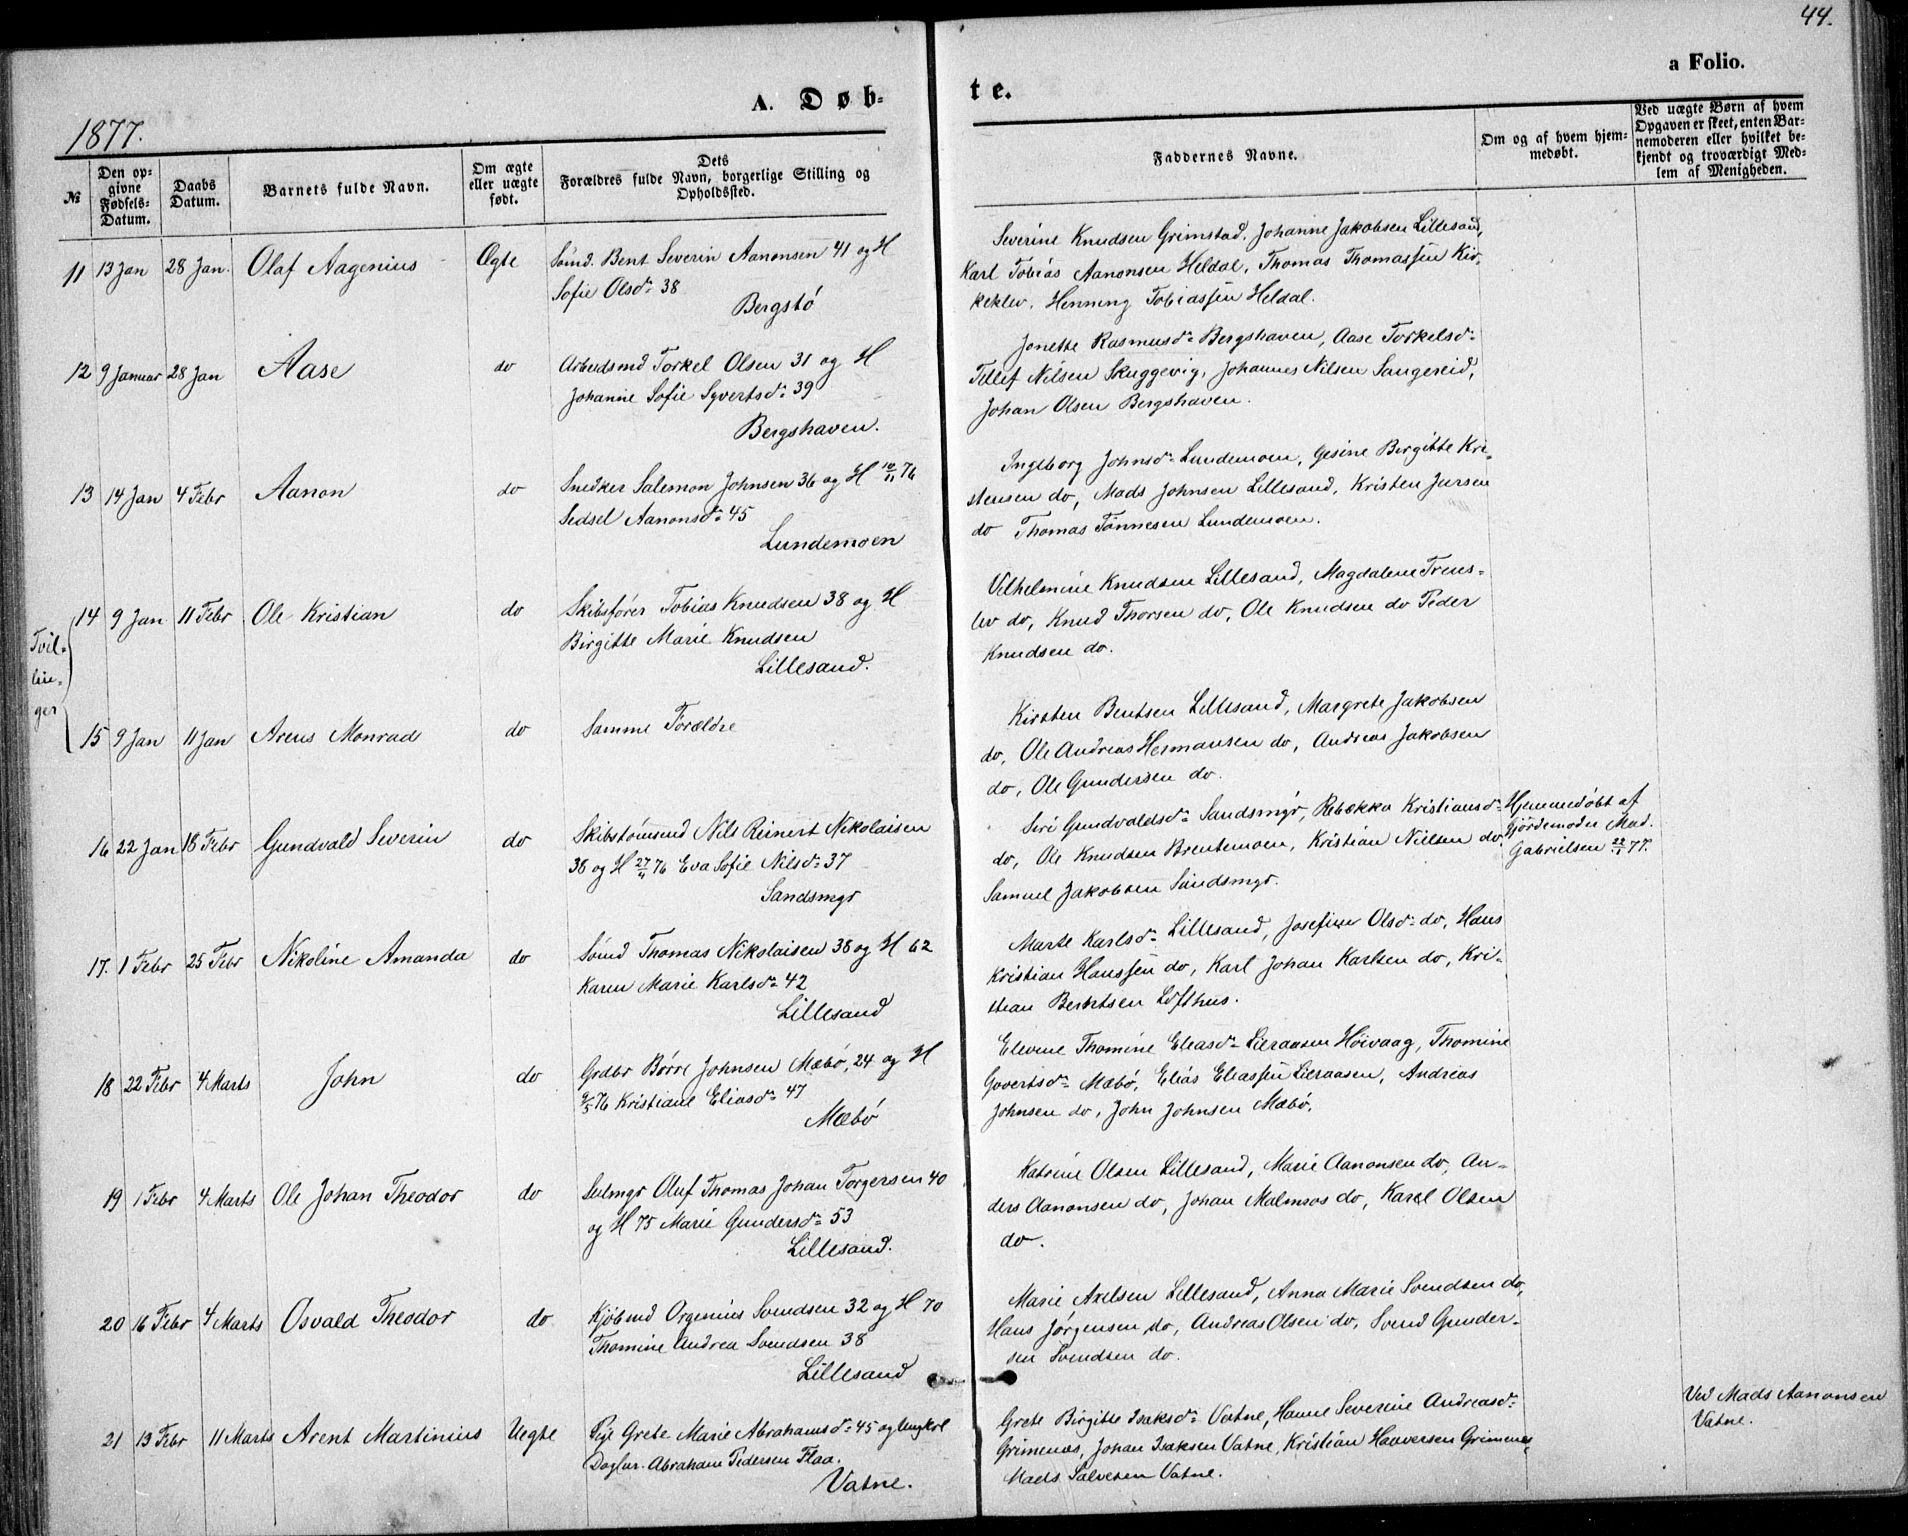 44.
a Folio.
A. Døb-
te.
1877.
№
Den op-
givne
Fødsels-
Datum.
Daabs
Datum.
Barnets fulde Navn.
Om ægte
eller uægte
født.
Dets
Forældres fulde Navn, borgerlige Stilling og
Opholdssted.
Faddernes Navne.
Om og af hvem hjem-
medøbt.
Ved uægte Børn af hvem
Opgaven er skeet, enten Bar-
nemoderen eller hvilket be-
kjendt og troværdigt Med-
lem af Menigheden.
11 13 Jan 28 Jan. Olaf Aagenius Ægte Sømd. Bent Severin Aanonsen 41 og H
Sofie Olsd: 38
Bergstø
Severine Knudsen Grimstad, Johanne Jakobsen Lillesand,
Karl Tobias Aanonsen Heldal, Thomas Thomassen Kir-
keklev, Henning Tobiassen Heldal.
12 9 Januar 28 Jan Aase do Arbeidsmd Torkel Olsen 31 og H
Johanne Sofie Syvertsd: 39
Bergshaven.
Jonette Rasmusd: Bergshaven, Aase Torkelsd:
Tellef Nilsen Skuggevig, Johannes Nilsen Sangereid,
Johan Olsen Bergshaven.
13 14 Jan 4 Febr Aanon do Snedker Salemon Johnsen 36 og H 10/11 76
Sidsel Aanonsd: 45
Lundemoen
Ingeborg Johnsd: Lundemoen, Gesine Birgitte Kri-
stensen do, Mads Johnsen Lillesand, Kristen Jursen
do Thomas Tönnesen Lundemoen.
Tvil-
lin-
ger
14 9 Jan 11 Febr Ole Kristian do Skibsfører Tobias Knudsen 38 og H
Birgitte Marie Knudsen
Lillesand.
Vilhelmine Knudsen Lillesand, Magdalene Treus-
lev do, Knud Thorsen do, Ole Knudsen do Peder
Knudsen do.
15 9 Jan 11 Jan Arens Monrad do Samme Forældre
Kirsten Bentsen Lillesand, Margrete Jakobsen
do, Ole Andreas Hermansen do, Andreas Jakobsen
do, Ole Gundersen do.
16 22 Jan 18 Febr Gundvald Severin do Skibstömmd Nils Reinert Nikolaisen
38 og H 27/11 76 Eva Sofie Nilsd: 37
Sandsmyr
Siri Gundvaldsd: Sandsmyr, Rebekka Kristiansd:
do, Ole Knudsen Brentemoen, Kristian Nielsen do.
Samuel Jakobsen Sandsmyr.
Hjemmedøbt af
Gjördemoder Mad.
Gabrielsen 22/1 77.
17. 1 Febr 25 Febr Nikoline Amanda do Sömd Thomas Nikolaisen 38 og H 62
Karen Marie Karlsd: 42
Lillesand
Marte Karlsd: Lillesand, Josefine Olsd: do, Hans
Kristian Hanssen do, Karl Johan Karlsen do, Kri-
stian Berntsen Lofthus.
18 22 Febr 4 Marts John do Grdbr Börre Johnsen Mæbø, 24 og H
9/5 76 Kristiane Eliasd: 47
Mæbø
Elevine Thomine Eliasd: Lieraasen Höivaag, Thomine
Govertsd: Mæbø, Elias Eliassen Lieraasen, Andreas
Johnsen do, John Johnsen Mæbø.
19 1 Febr 4 Marts Ole Johan Theodor do Seilmgr Oluf Thomas Johan Torgersen 40
og H 75 Marie Gundersd: 53
Lillesand.
Katrine Olsen Lillesand, Marie Aanonsen do, An-
ders Aanonsen do, Johan Malmros do, Karel Olsen
do.
20 16 Febr 4 Marts Osvald Theodor do Kjöbmd Orgenius Svendsen 32 og H 70
Thomine Andrea Svendsen 38
Lillesand
Marie Axelsen Lillesand, Anna Marie Svendsen do,
Hans Jörgensen do, Andreas Olsen do, Svend Gunder-
sen Svendsen do.
21 13 Febr 11 Marts Arent Martinius Uegte Pige Grete Marie Abrahamsd: 45 og Ungkrl
Abraham Pedersen Flaa.
Vatne.
Grete Birgitte Isaksd: Vatne, Hanne Severine Andreasd:
Grimenes, Johan Isaksen Vatne, Kristian Haaversen Grimenes,
Mads Salvesen Vatne.
Ved Mads Aanonsen
Vatne.